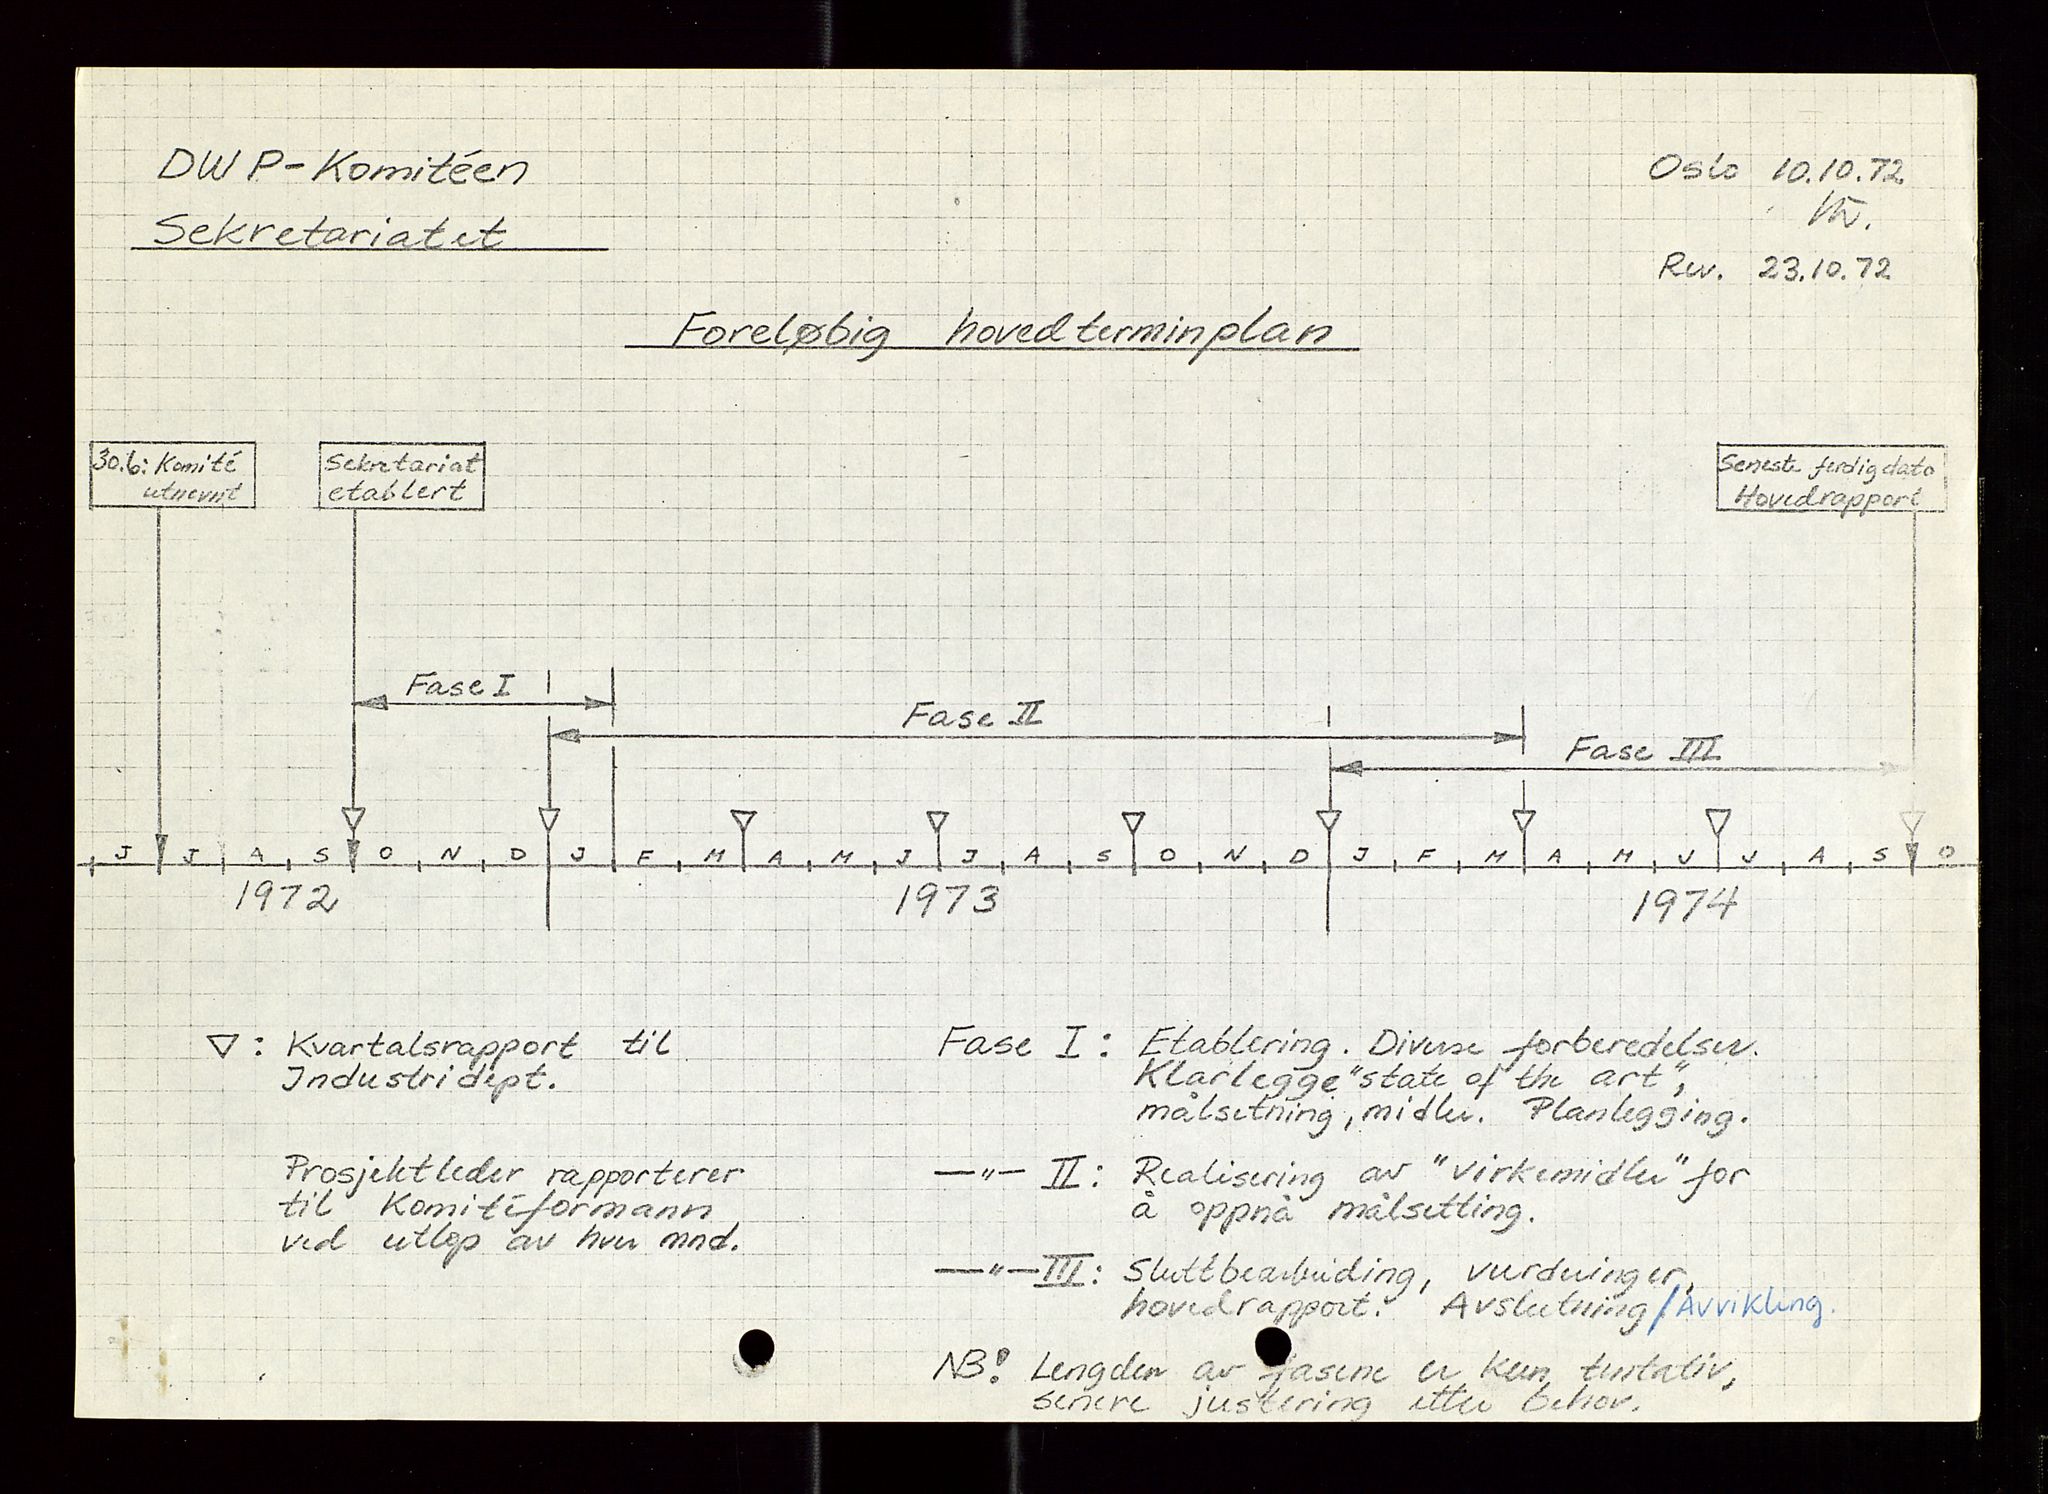 DWP-Komitéen
Sekretariatet
Oslo 10.10.72
Rev. 23.10.72
Foreløbig hovedterminplan
30.6: Komité
utnevnt
Sekretariat
etablert
Seneste ferdigdato
Hovedrapport
Fase I
Fase II
Fase III
J J A S O N D J F M A M J J A S O N D J F M A M J J A S O
1972 1973 1974
▽: Kvartalsrapport til
Industridept.
Prosjektleder rapporterer
til Komitéformann
ved utløp av hver mnd.
Fase I: Etablering. Diverse forberedelser.
Klarlegge "state of the art",
målsetning, midler. Planlegging.
—"— II: Realisering av "virkemidler" for
å oppnå målsetting.
—"— III: Sluttbearbeiding, vurderinger,
hovedrapport. Avslutning/Avvikling.
NB! Lengden av fasene er kun tentativ,
senere justering etter behov.